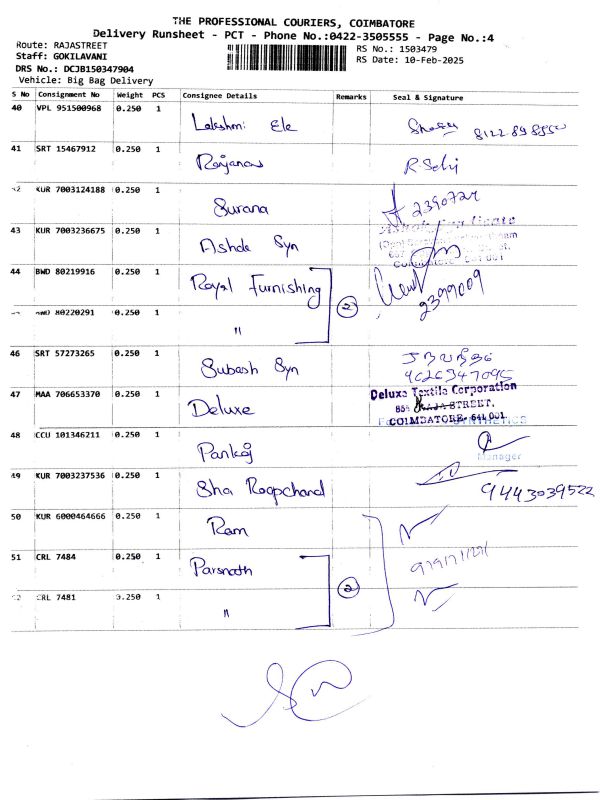 THE PROFESSIONAL COURIERS, COIMBATORE
Delivery Runsheet - PCT - Phone No.:0422-3505555 - Page No.:4
Route: RAJASTREET
Staff: GOKILAVANI
DRS No.: DCJB150347904
Vehicle: Big Bag Delivery
RS No.: 1503479
RS Date: 10-Feb-2025
S No Consignment No Weight PCS Consignee Details Remarks Seal & Signature
40 VPL 951500968 0.250 1 Lakshmi Ele
41 SRT 15467912 0.250 1 Rajanas R. Selvi
KUR 7003124188 0.250 1 Surana 2390724
43 KUR 7003236675 0.250 1 Ashda Syn
44 BWD 80219916 0.250 1 Royal Furnishing 2 2399009
80220291 0.250 1 "
46 SRT 57273265 0.250 1 Subash Syn 9626347095
47 MAA 706653370 0.250 1 Deluxe Deluxe Textile Corporation
RAJA STREET,
COIMBATORE-641 001
48 CCU 101346211 0.250 1 Pankaj Manager
49 KUR 7003237536 0.250 1 Sha Roopchand 9443039522
50 KUR 6000464666 0.250 1 Ram
51 CRL 7484 0.250 1 Parsnath 2
CRL 7481 0.250 1 "